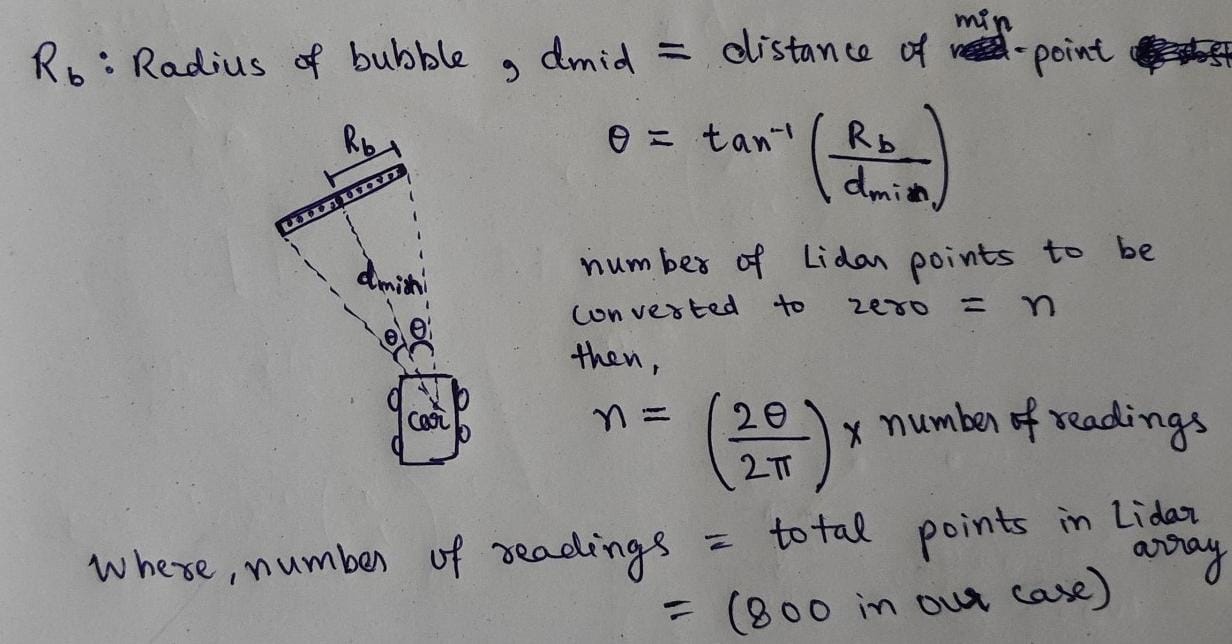 R_b : Radius of bubble , dmid = distance of min-point
θ = tan⁻¹ (R_b / dmin)
R_b
dmin
θ θ
car
number of Lidar points to be
converted to zero = n
then,
n = (2θ / 2π) x number of readings
Where, number of readings = total points in Lidar array
= (800 in our case)